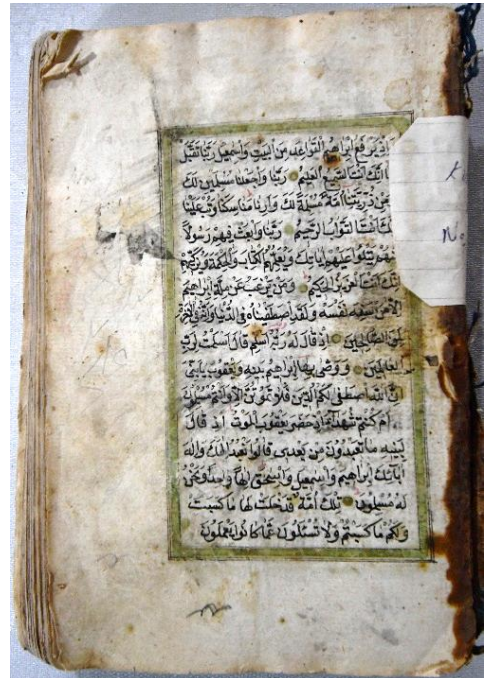 وَاِذْ يَرْفَعُ اِبْرَاهِيمُ الْقَوَاعِدَ مِنَ الْبَيْتِ وَاِسْمٰعِيلُ رَبَّنَا تَقَبَّلْ
اِنَّكَ اَنْتَ السَّمِيعُ الْعَلِيمُ رَبَّنَا وَاجْعَلْنَا مُسْلِمَيْنِ لَكَ
وَمِنْ ذُرِّيَّتِنَا اُمَّةً مُسْلِمَةً لَكَ وَاَرِنَا مَنَاسِكَنَا وَتُبْ عَلَيْنَا
اِنَّكَ اَنْتَ التَّوَّابُ الرَّحِيمُ رَبَّنَا وَابْعَثْ فِيهِمْ رَسُولًا
مِنْهُمْ يَتْلُوا عَلَيْهِمْ اٰيَاتِكَ وَيُعَلِّمُهُمُ الْكِتَابَ وَالْحِكْمَةَ وَيُزَكِّيهِمْ
اِنَّكَ اَنْتَ الْعَزِيزُ الْحَكِيمُ وَمَنْ يَرْغَبُ عَنْ مِلَّةِ اِبْرَاهِيمَ
اِلَّا مَنْ سَفِهَ نَفْسَهُ وَلَقَدِ اصْطَفَيْنَاهُ فِي الدُّنْيَا وَاِنَّهُ فِي الْاٰخِرَةِ
لَمِنَ الصَّالِحِينَ اِذْ قَالَ لَهُ رَبُّهُ اَسْلِمْ قَالَ اَسْلَمْتُ لِرَبِّ
الْعَالَمِينَ وَوَصّٰى بِهَا اِبْرَاهِيمُ بَنِيهِ وَيَعْقُوبُ يَا بَنِيَّ
اِنَّ اللّٰهَ اصْطَفٰى لَكُمُ الدِّينَ فَلَا تَمُوتُنَّ اِلَّا وَاَنْتُمْ مُسْلِمُونَ
اَمْ كُنْتُمْ شُهَدَاءَ اِذْ حَضَرَ يَعْقُوبَ الْمَوْتُ اِذْ قَالَ
لِبَنِيهِ مَا تَعْبُدُونَ مِنْ بَعْدِي قَالُوا نَعْبُدُ اِلٰهَكَ وَاِلٰهَ
اٰبَائِكَ اِبْرَاهِيمَ وَاِسْمٰعِيلَ وَاِسْحٰقَ اِلٰهًا وَاحِدًا وَنَحْنُ
لَهُ مُسْلِمُونَ تِلْكَ اُمَّةٌ قَدْ خَلَتْ لَهَا مَا كَسَبَتْ
وَلَكُمْ مَا كَسَبْتُمْ وَلَا تُسْئَلُونَ عَمَّا كَانُوا يَعْمَلُونَ